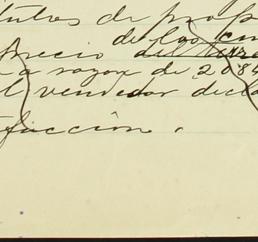 títulos de prop
de los cua
Precio del terre
a razon de 2084
el vendedor decla
facción.